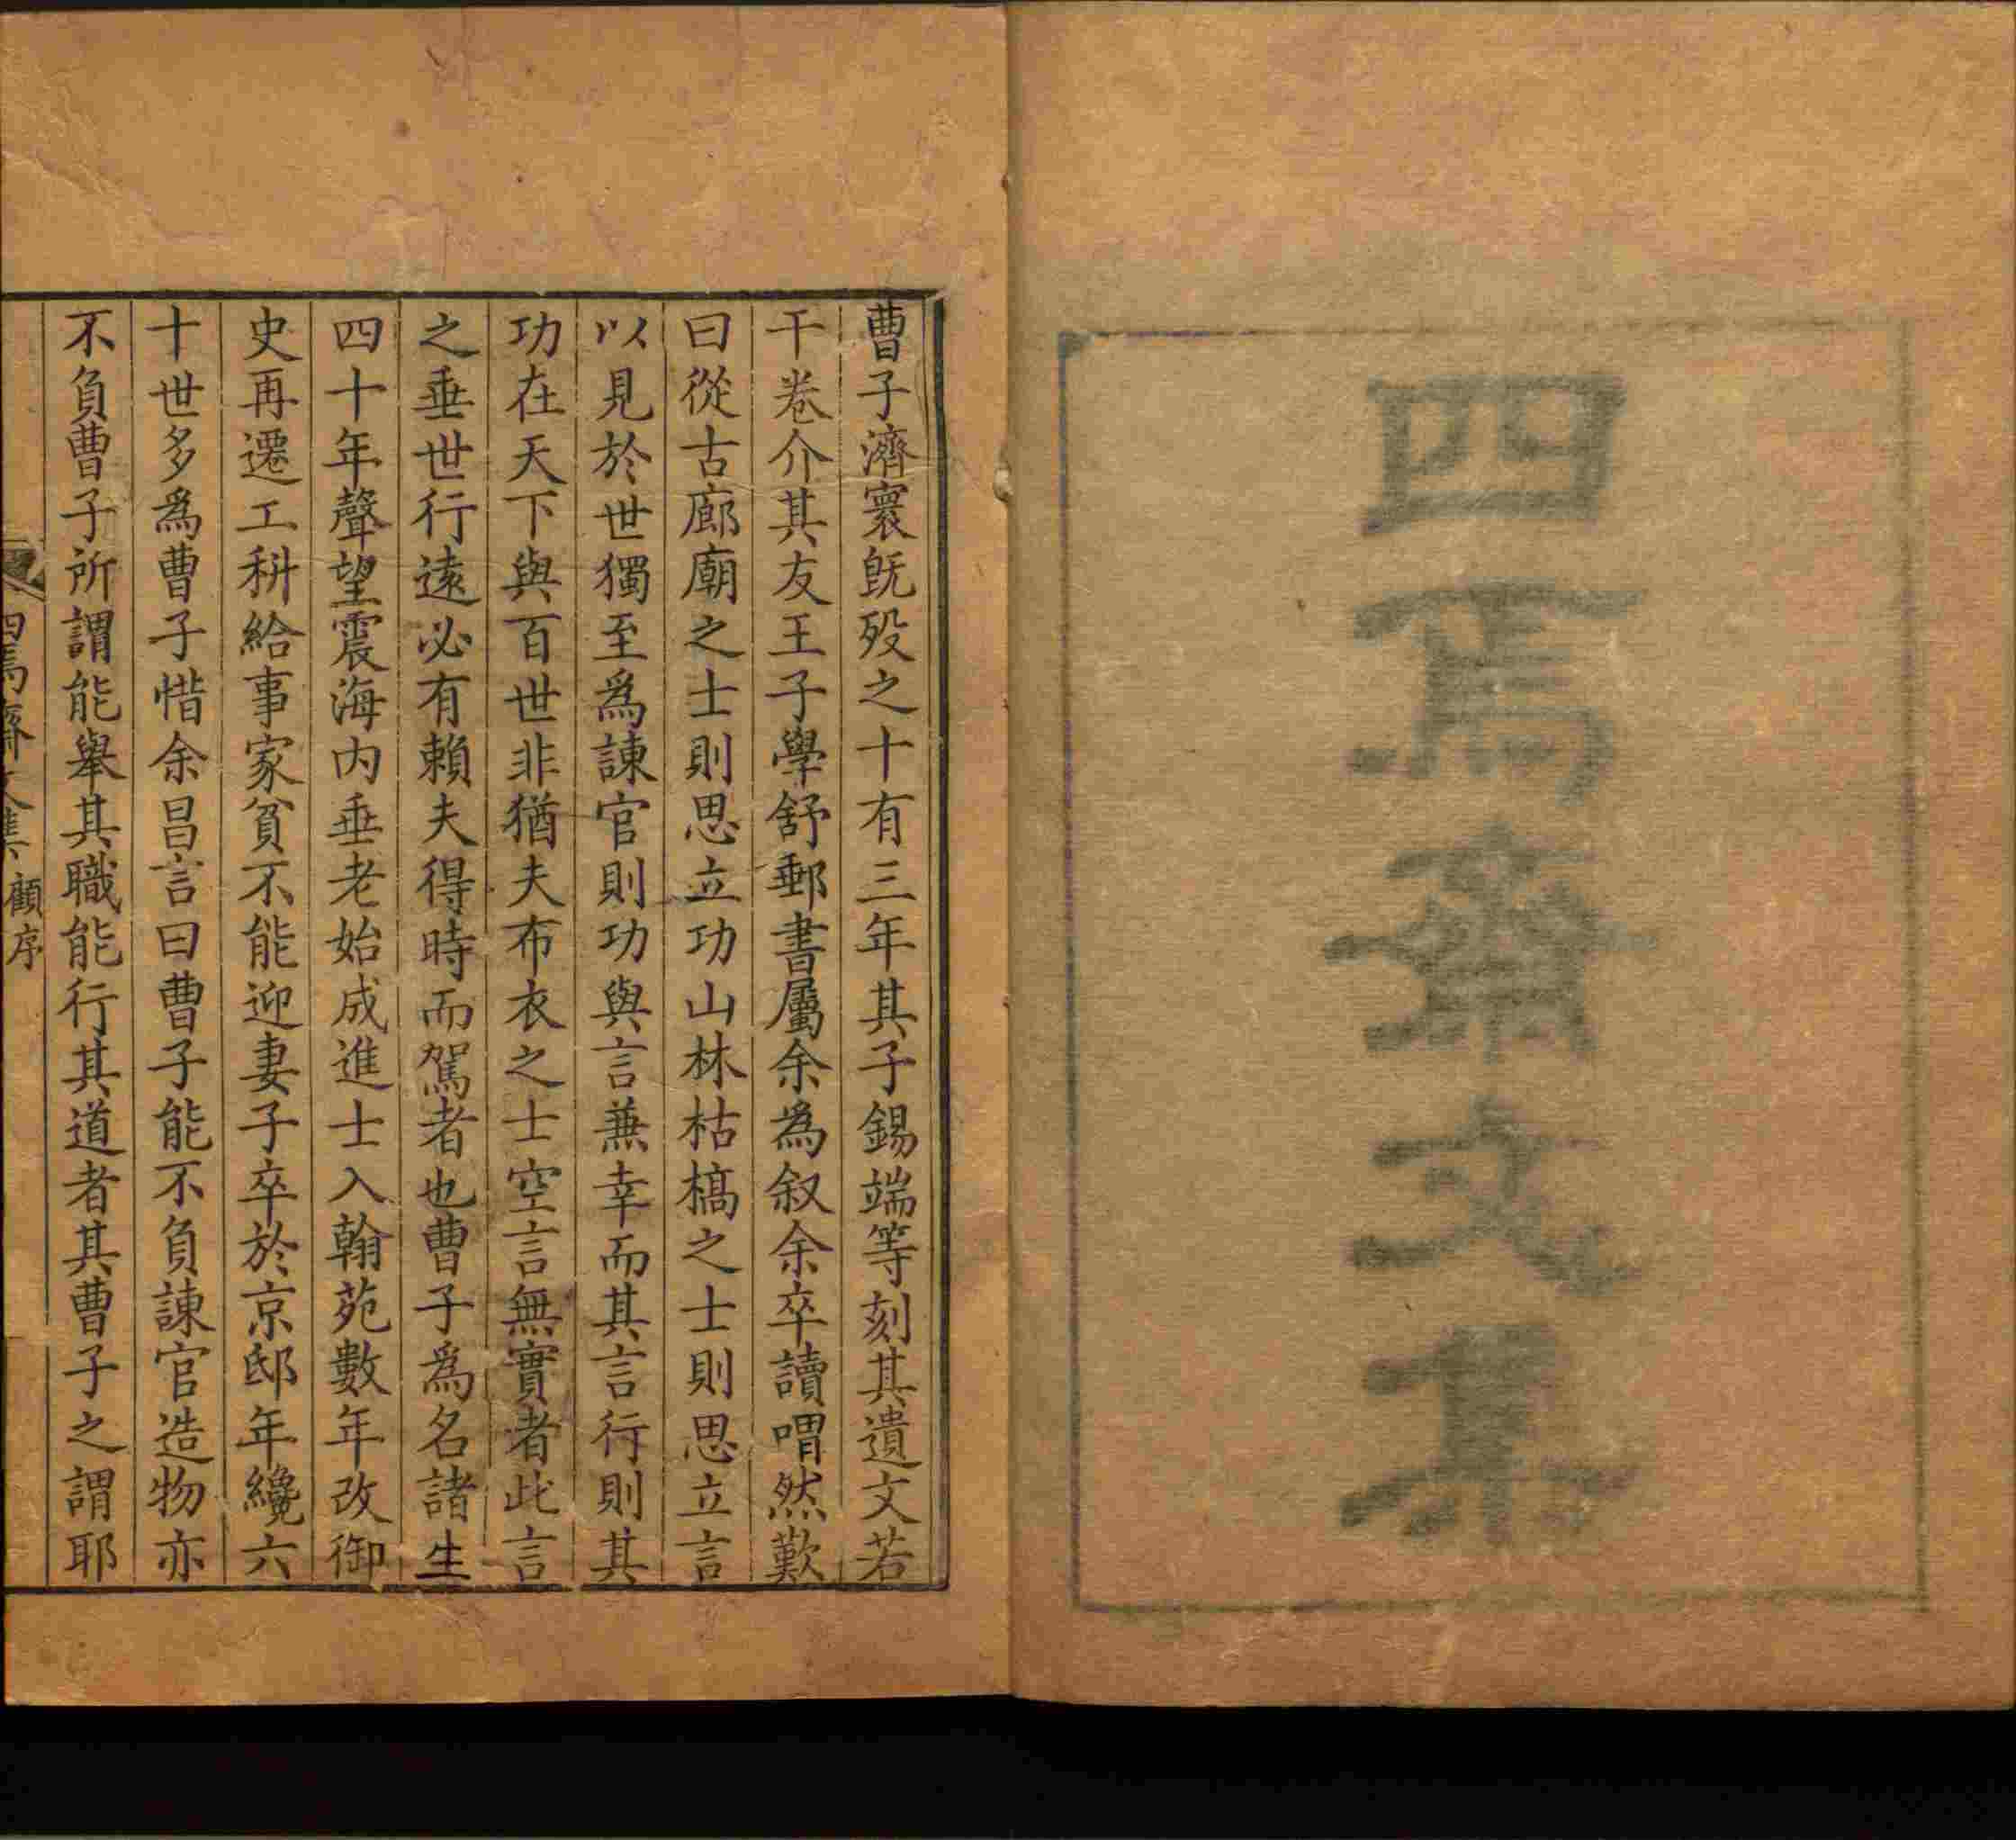 四焉齋文集
曹子濟寰旣歿之十有三年其子錫端等刻其遺文若
干卷介其友王子學舒郵書屬余為叙余卒讀喟然歎
曰從古廊廟之士則思立功山林枯槁之士則思立言
以見於世獨至爲諫官則功與言兼幸而其言行則其
功在天下與百世非猶夫布衣之士空言無實者此言
之垂世行遠必有賴夫得時而駕者也曹子爲名諸生
四十年聲望震海内垂老始成進士入翰苑數年改御
史再遷工科給事家貧不能迎妻子卒於京邸年纔六
十世多爲曹子惜余昌言曰曹子能不負諫官造物亦
不負曹子所謂能舉其職能行其道者其曹子之謂耶
四焉齋文集 顧序